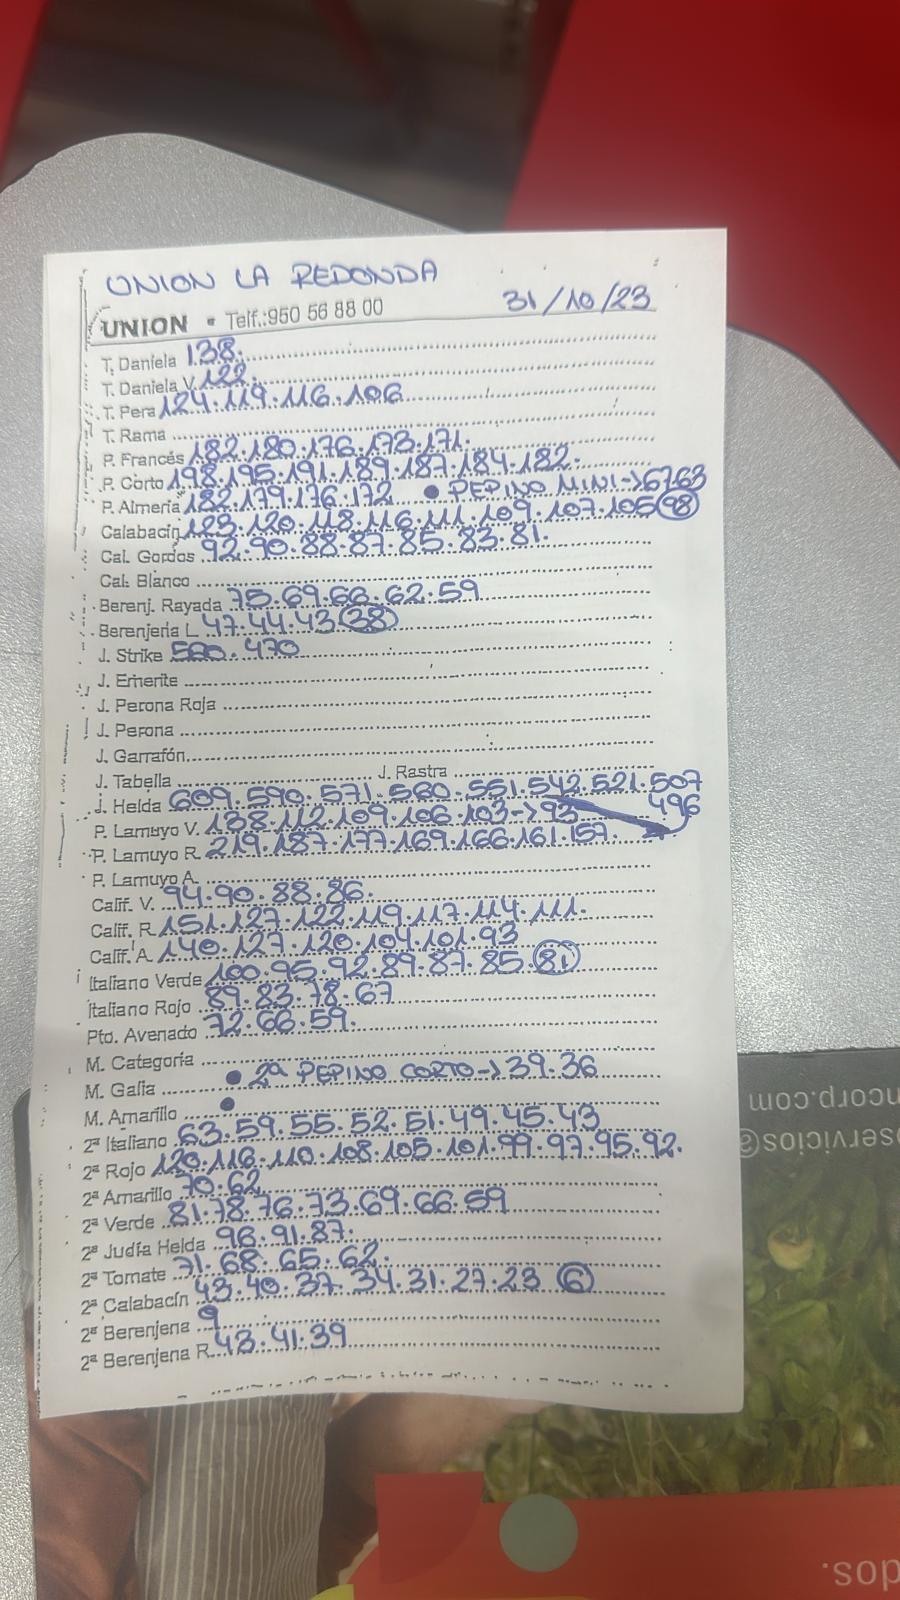 UNION LA REDONDA
31/10/23
UNION • Telf.:950 56 88 00
T. Daniela 138.
T. Daniela V. 122.
T. Pera 124.119.116.106
T. Rama
P. Francés 182.180.176.173.171.
P. Corto 198.195.191.189.187.184.182.
P. Almería 182.179.176.172 • PEPINO MINI→6763
Calabacín 123.120.118.116.111.109.107.105 98
Cal. Gordos 92.90.88.87.85.83.81.
Cal. Blanco
Berenj. Rayada 75.69.66.62.59
Berenjena L 47.44.43 38
J. Strike 500.470
J. Emerite
J. Perona Roja
J. Perona
J. Garrafón
J. Tabella J. Rastra
J. Helda 609.590.571.560.551.542.521.507
496
P. Lamuyo V. 138.112.109.106.103→93
P. Lamuyo R 219.187.177.169.166.161.157.
P. Lamuyo A
Calif. V. 94.90.88.86.
Calif. R 151.127.122.119.117.114.111.
Calif. A. 140.127.120.104.101.93
Italiano Verde 100.95.92.89.87.85. 81
Italiano Rojo 89.83.78.67
Pto. Avenado 72.66.59.
M. Categoría
M. Galia • 2ª PEPINO CORTO→39.36
M. Amarillo •
2ª Italiano 63.59.55.52.51.49.45.43
2ª Rojo 120.116.110.108.105.101.99.97.95.92.
2ª Amarillo 70.62
2ª Verde 81.78.76.73.69.66.59
2ª Judía Helda 96.91.87.
2ª Tomate 71.68.65.62.
2ª Calabacín 43.40.37.34.31.27.23 6
2ª Berenjena 9
2ª Berenjena R 43.41.39
ncorp.com
servicios@
dos.